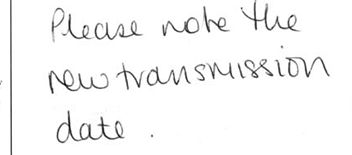 Please note the
new transmission
date .